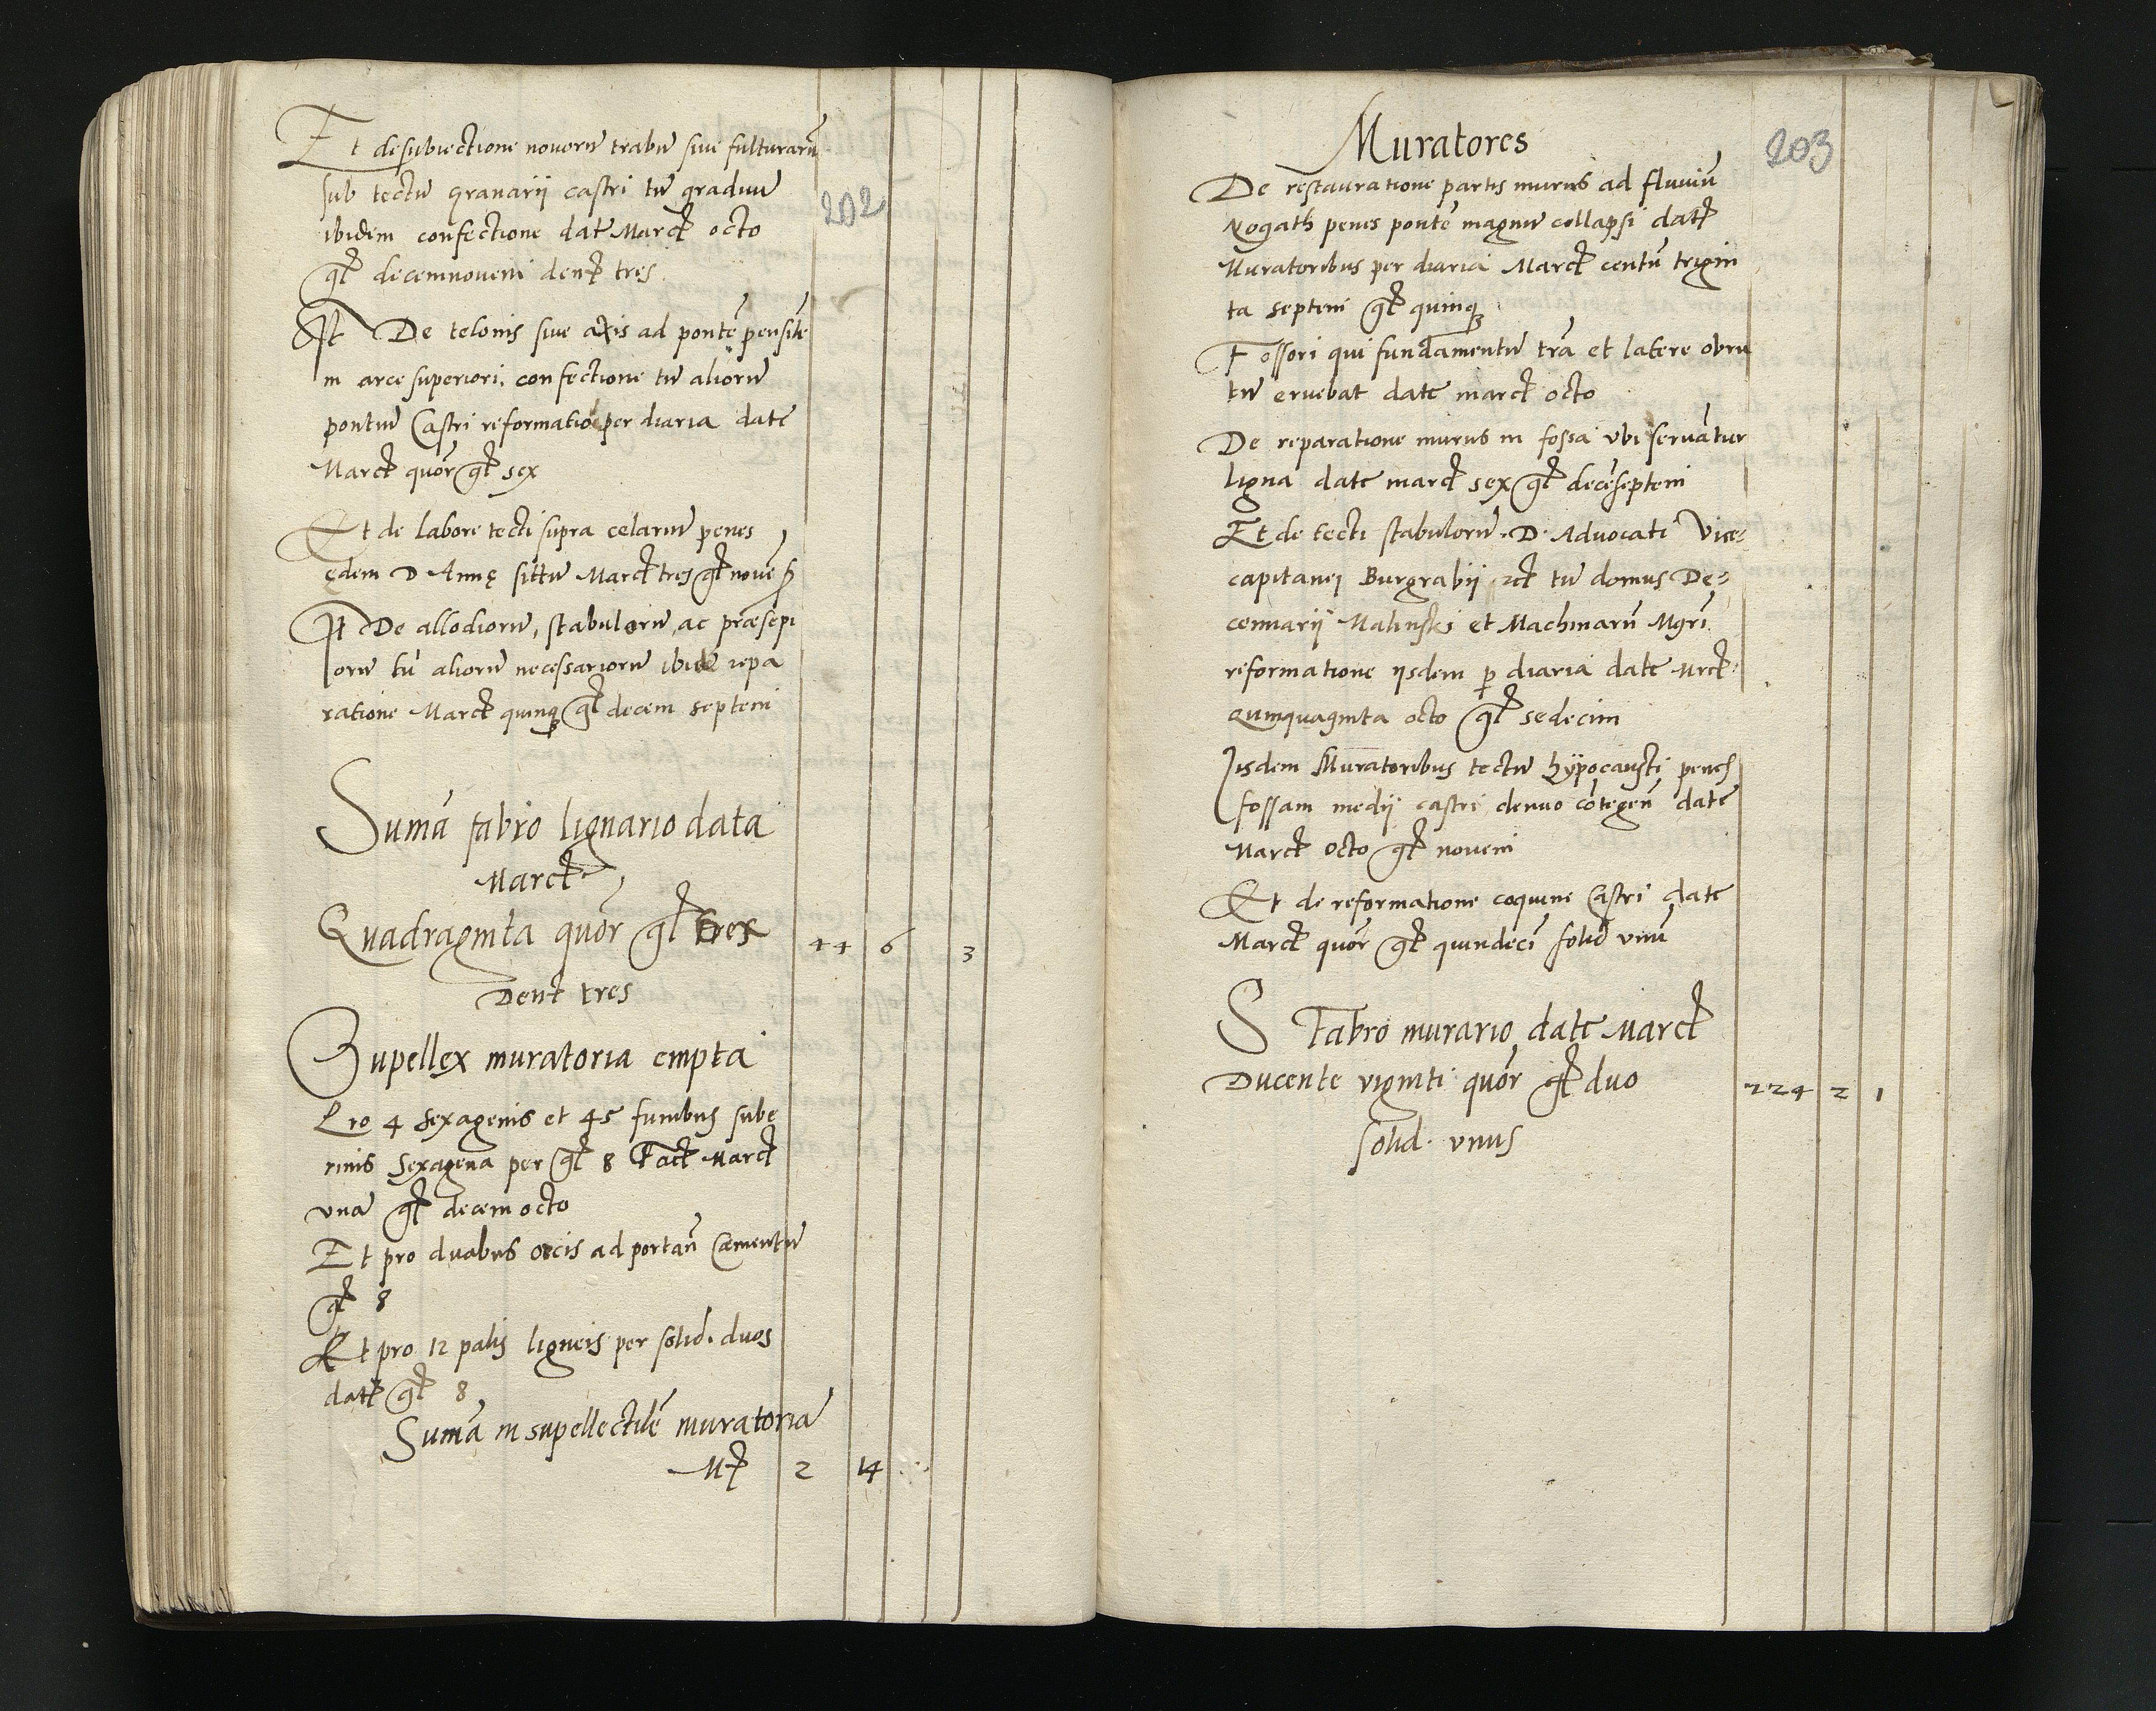 Et de subiectione novorū trabiū sive fulturarū
sub tectū granarij castri tū graduū
202
ibidem confectione date Marcꝭ octo
gꝭ decemnoveni denꝭ tres
It De telonis sive axis ad pontē pensilē
in arce superiori, confectione tū aliorū
pontiū Castri reformatio per diaria date
Marcꝭ quōr gꝭ sex
Et de labore tecti supra celariū penes
ędem D Annę sittū Marcꝭ tres gꝭ novē
It De allodiorū, stabulorū, ac præsepi
orū tū aliorū necessariorū ibidē repa
ratione Marcꝭ quinqꝫ gꝭ decem septeni
Sumā fabro lignario data
Marcꝭ
Quadraginta quōr gꝭ
44 6 3
Denꝭ tres
Supellex muratoria empta
Pro 4 sexagenis et 45 funibus sube
rinis sexagena per gꝭ 8 Facꝭ Marcꝭ
una gꝭ decem octo
Et pro duabus ocis ad portan̄ Cæmentū
gꝭ 8
Et pro 12 palis ligneis per solid. duos
datꝭ gꝭ 8
Sumā in supellectilē muratoriā
Mꝭ 2 14
Muratores
203
De restauratione partis murus ad fluviū
Nogath penes pontē magnū collapsi datꝭ
Muratoribus per diaria Marcꝭ centū trigin
ta septeni gꝭ quinqꝫ
Fossori qui fundamentū trā et latere obru
tū eruebat date marcꝭ octo
De reparatione murus in fossa ubi servātur
ligna date marcꝭ sex gꝭ decēsepteni
Et de tecti stabulorū D. Advocati Vice-
capitanei Burgrabij ꝛcꝭ tū domus De-
cennarij Malinski et Machinarū Mgrī
reformatione ijsdem ꝑ diaria date Mrcꝭ
Quinquaginta octo gꝭ sedecim
Iisdem Muratoribus tectū hÿpocausti penes
fossam medij castri denuo cōtegen̄ date
Marcꝭ octo gꝭ noveni
Et de reformatione coquine Castri date
Marcꝭ quōr gꝭ quindecī solid unū
S Fabro murario date Marcꝭ
Ducente viginti quōr gꝭ duo
224 2 1
solid. unus